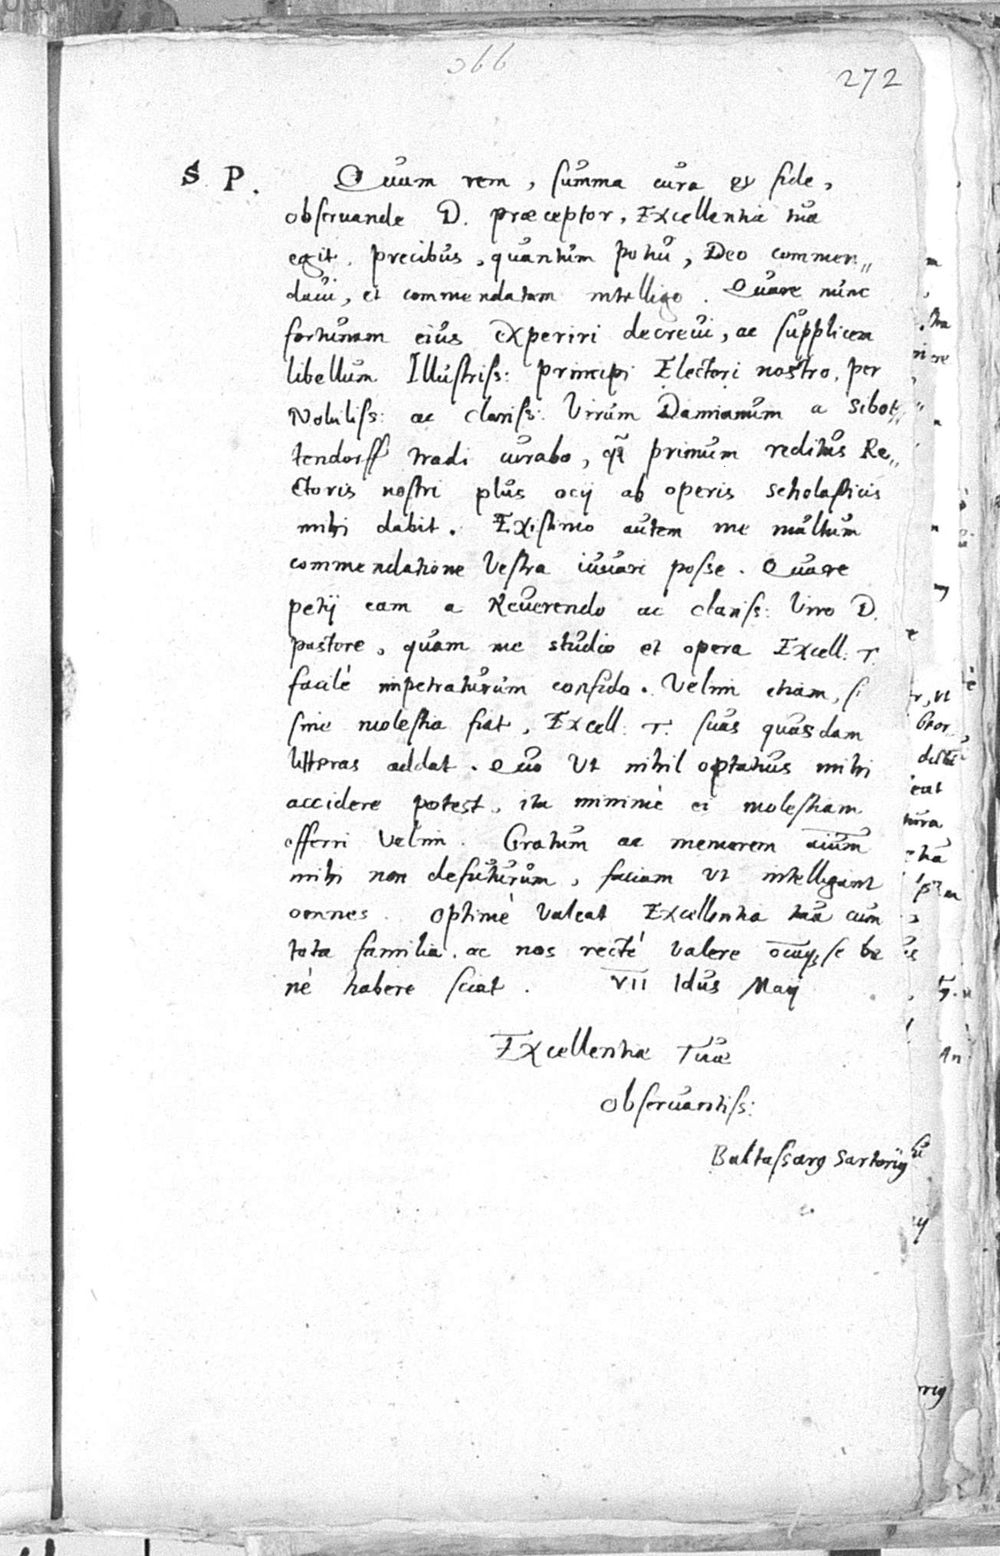 366
272
S. P. Quum rem, summa cura et fide,
obseruande D. præceptor, Excellentia tua
egit, precibus, quantum potui, Deo commen„
daui, et commendatam intelligo. Quare nunc
fortunam eius experiri decreui, ac supplicem
libellum Illustriss: principi Electori nostro, per
Nobiliss: ac clariss: Virum Damianum a Sibot„
tendorff tradi curabo, primum reditus Re„
ctoris nostri plus ocij ab operis scholasticis
mihi dabit. Existimo autem me multum
commendatione Vestra iuuari posse. Quare
petij eam a Reuerendo ac clariss: Viro D.
pastore, quam me studio et opera Excell: T.
facilè impetraturum confido. Velim etiam, si
sine molestia fiat, Excell: T. suas quasdam
litteras addat. Quo Vt nihil optatius mihi
accidere potest, ita minimè ei molestiam
offerri Velim. Gratum ac memorem aium
mihi non defuturum, faciam Vt intelligant
omnes. Optimè Valeat Excellentia tua cum
tota familia, ac nos rectè Valere se be
nè habere sciat. VII Idus Maij
Excellentiæ Tuæ
obseruantiss:
Baltassarus Sartorius